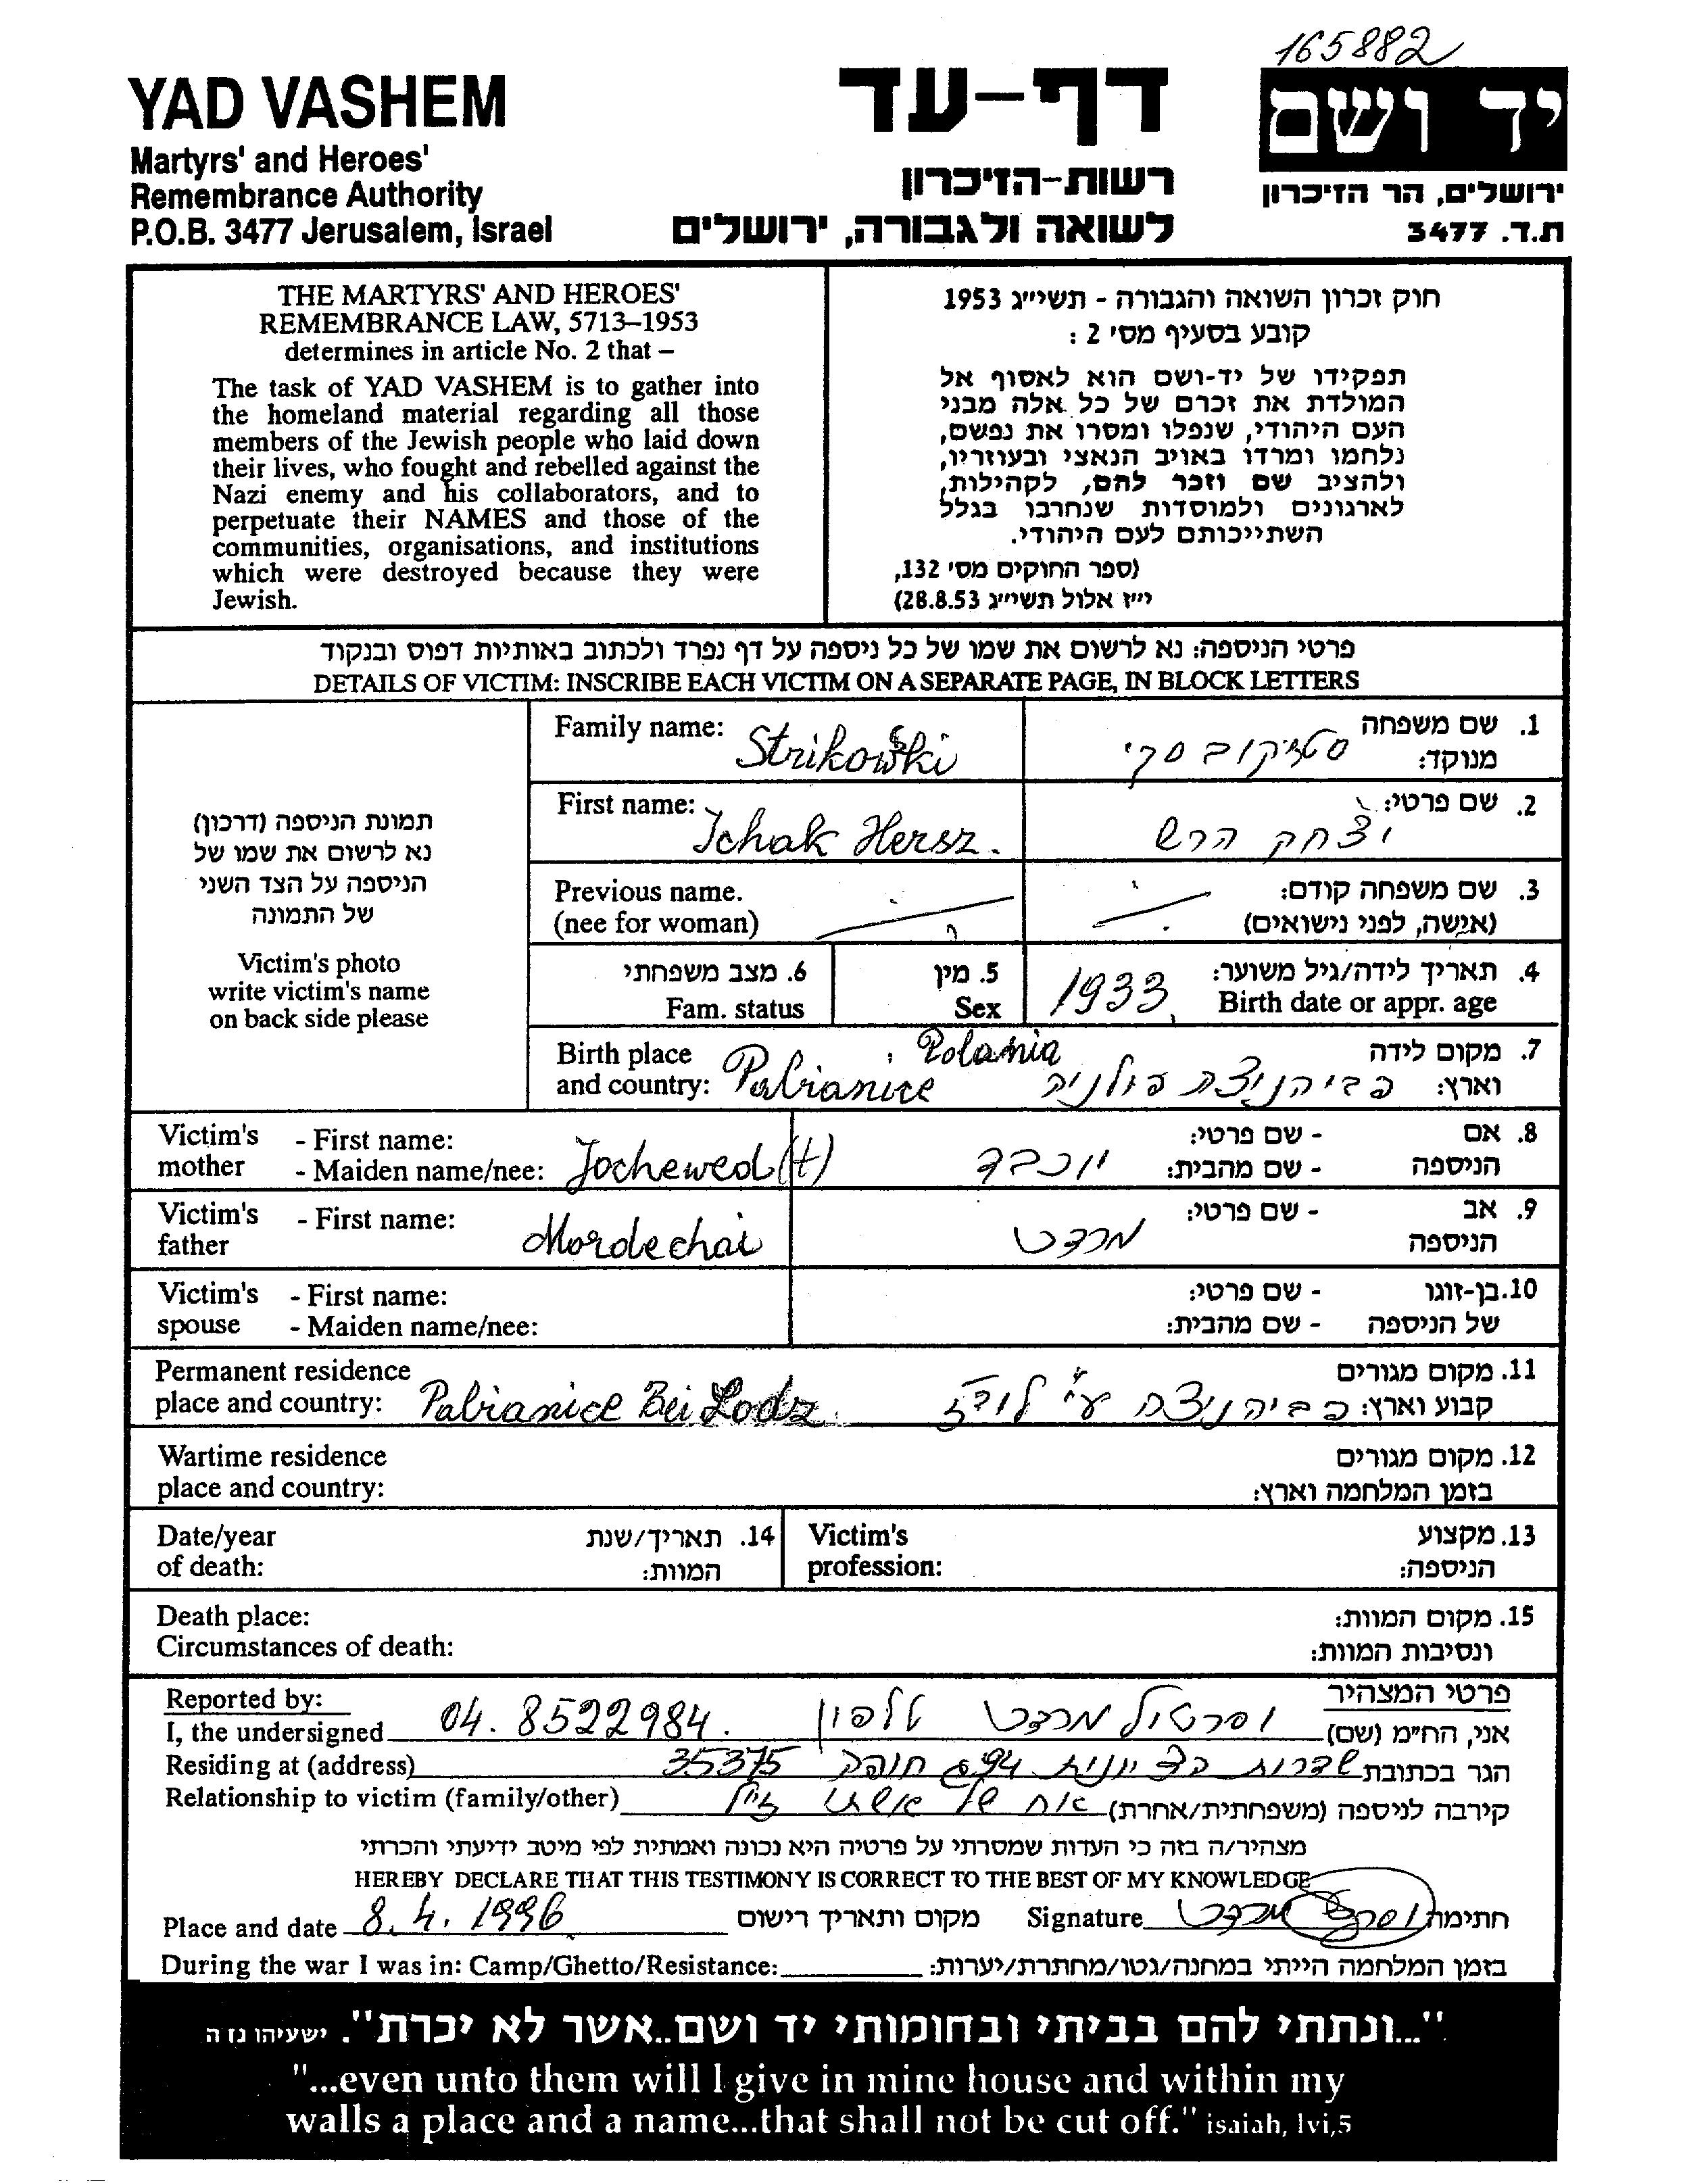 165882
YAD VASHEM
Martyrs' and Heroes'
Remembrance Authority
P.O.B. 3477 Jerusalem, Israel
דף-עד
רשות-הזיכרון
לשואה ולגבורה, ירושלים
יד ושם
ירושלים, הר הזיכרון
ת.ד. 3477
THE MARTYRS' AND HEROES'
REMEMBRANCE LAW, 5713–1953
determines in article No. 2 that –
The task of YAD VASHEM is to gather into
the homeland material regarding all those
members of the Jewish people who laid down
their lives, who fought and rebelled against the
Nazi enemy and his collaborators, and to
perpetuate their NAMES and those of the
communities, organisations, and institutions
which were destroyed because they were
Jewish.
חוק זכרון השואה והגבורה - תשי״ג 1953
קובע בסעיף מס' 2 :
תפקידו של יד-ושם הוא לאסוף אל
המולדת את זכרם של כל אלה מבני
העם היהודי, שנפלו ומסרו את נפשם,
נלחמו ומרדו באויב הנאצי ובעוזריו,
ולהציב שם וזכר להם, לקהילות,
לארגונים ולמוסדות שנחרבו בגלל
השתייכותם לעם היהודי.
(ספר החוקים מס' 132,
י״ז אלול תשי״ג 28.8.53)
פרטי הניספה: נא לרשום את שמו של כל ניספה על דף נפרד ולכתוב באותיות דפוס ובנקוד
DETAILS OF VICTIM: INSCRIBE EACH VICTIM ON A SEPARATE PAGE, IN BLOCK LETTERS
תמונת הניספה (דרכון)
נא לרשום את שמו של
הניספה על הצד השני
של התמונה
Victim's photo
write victim's name
on back side please
Family name: Strikowski סטריקובסקי 1. שם משפחה
מנוקד:
First name: Ichak Hersz. יצחק הרש 2. שם פרטי:
Previous name. 3. שם משפחה קודם:
(nee for woman) (אישה, לפני נישואים)
6. מצב משפחתי 5. מין 1933 4. תאריך לידה/גיל משוער:
Fam. status Sex Birth date or appr. age
Birth place Polania 7. מקום לידה
and country: Pabianice פביהניצה פולניה וארץ:
Victim's - First name: - שם פרטי: 8. אם
mother - Maiden name/nee: Jochewed (t) יוכבד - שם מהבית: הניספה
Victim's - First name: - שם פרטי: 9. אב
father Mordechai מרדכי הניספה
Victim's - First name: - שם פרטי: 10. בן-זוגו
spouse - Maiden name/nee: - שם מהבית: של הניספה
Permanent residence 11. מקום מגורים
place and country: Pabianice Bei Lodz פביהניצה ע״י לודז קבוע וארץ:
Wartime residence 12. מקום מגורים
place and country: בזמן המלחמה וארץ:
Date/year 14. תאריך/שנת Victim's 13. מקצוע
of death: המוות: profession: הניספה:
Death place: 15. מקום המוות:
Circumstances of death: ונסיבות המוות:
Reported by: פרטי המצהיר
I, the undersigned 04. 8522984. טלפון מרדכי אני, הח״מ (שם)
Residing at (address) 35375 חיפה 94 שדרות הציונות הגר בכתובת
Relationship to victim (family/other) אח של אשתי ז״ל קירבה לניספה (משפחתית/אחרת)
מצהיר/ה בזה כי העדות שמסרתי על פרטיה היא נכונה ואמתית לפי מיטב ידיעתי והכרתי
HEREBY DECLARE THAT THIS TESTIMONY IS CORRECT TO THE BEST OF MY KNOWLEDGE
Place and date 8.4.1996 מקום ותאריך רישום Signature מרדכי חתימה
During the war I was in: Camp/Ghetto/Resistance: בזמן המלחמה הייתי במחנה/גטו/מחתרת/יערות:
"...ונתתי להם בביתי ובחומותי יד ושם..אשר לא יכרת". ישעיהו נו ה
"...even unto them will I give in mine house and within my
walls a place and a name...that shall not be cut off." isaiah, lvi,5